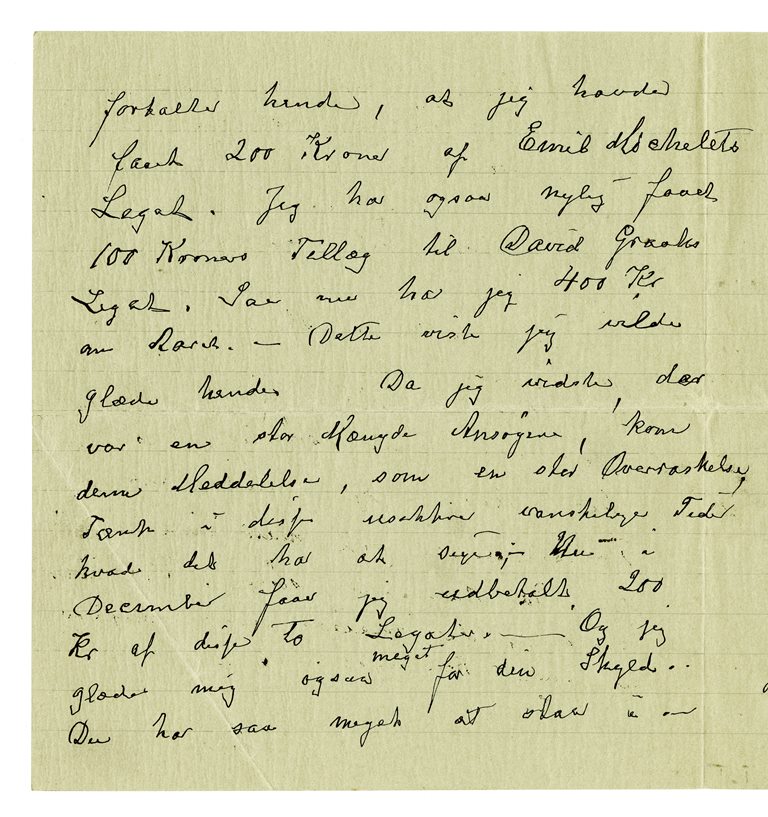 fortalte hende, at jeg havde
faaet 200 Kroner af Emil Michelets
Legat. Jeg har ogsaa nylig faaet
100 Kroners Tillæg til David Graahs
Legat. Saa nu har jeg 400 Kr
om Aaret. — Dette viste jeg vilde
glæde hende Da jeg vidste, der
var en stor Mængde Ansögere, kom
denne Meddelelse, som en stor Overraskelse,
Tænk i disse usikkre vanskelige Tider
hvad det har at sige; — Nu i
December faar jeg udbetalt 200
Kr af disse To Legater. — Og jeg
glæder mig ogsaa meget for din Skyld..
Du har saa meget at staa i —